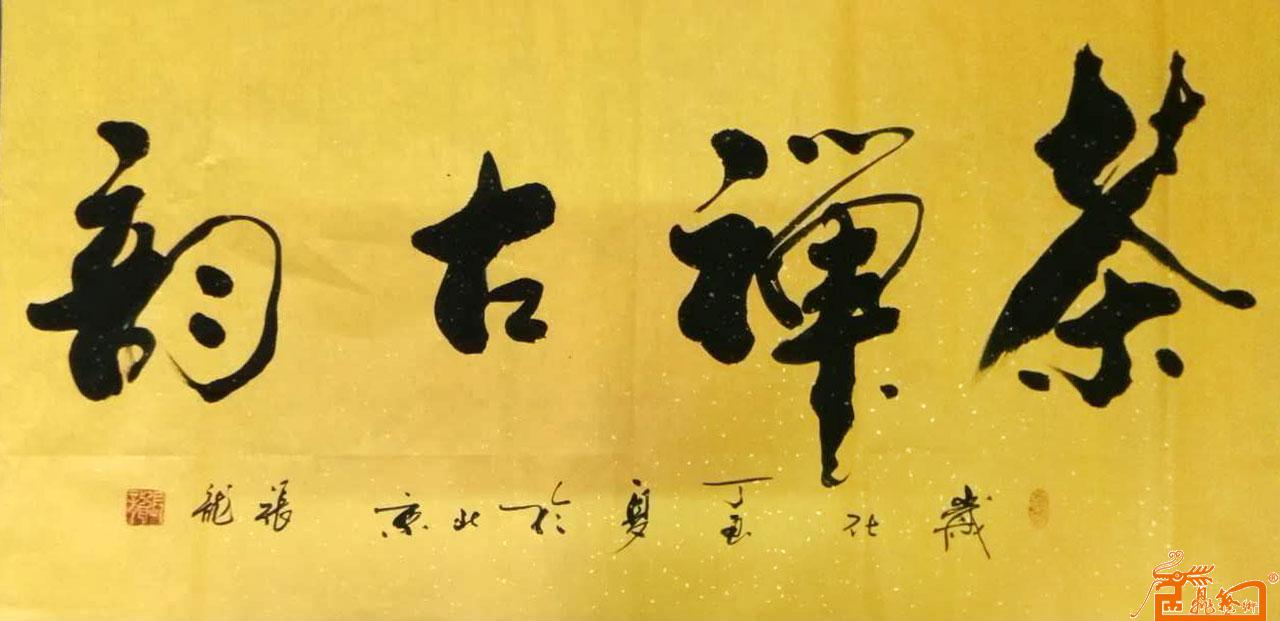 茶禪古韻
歲在丁酉夏於北京 張龍